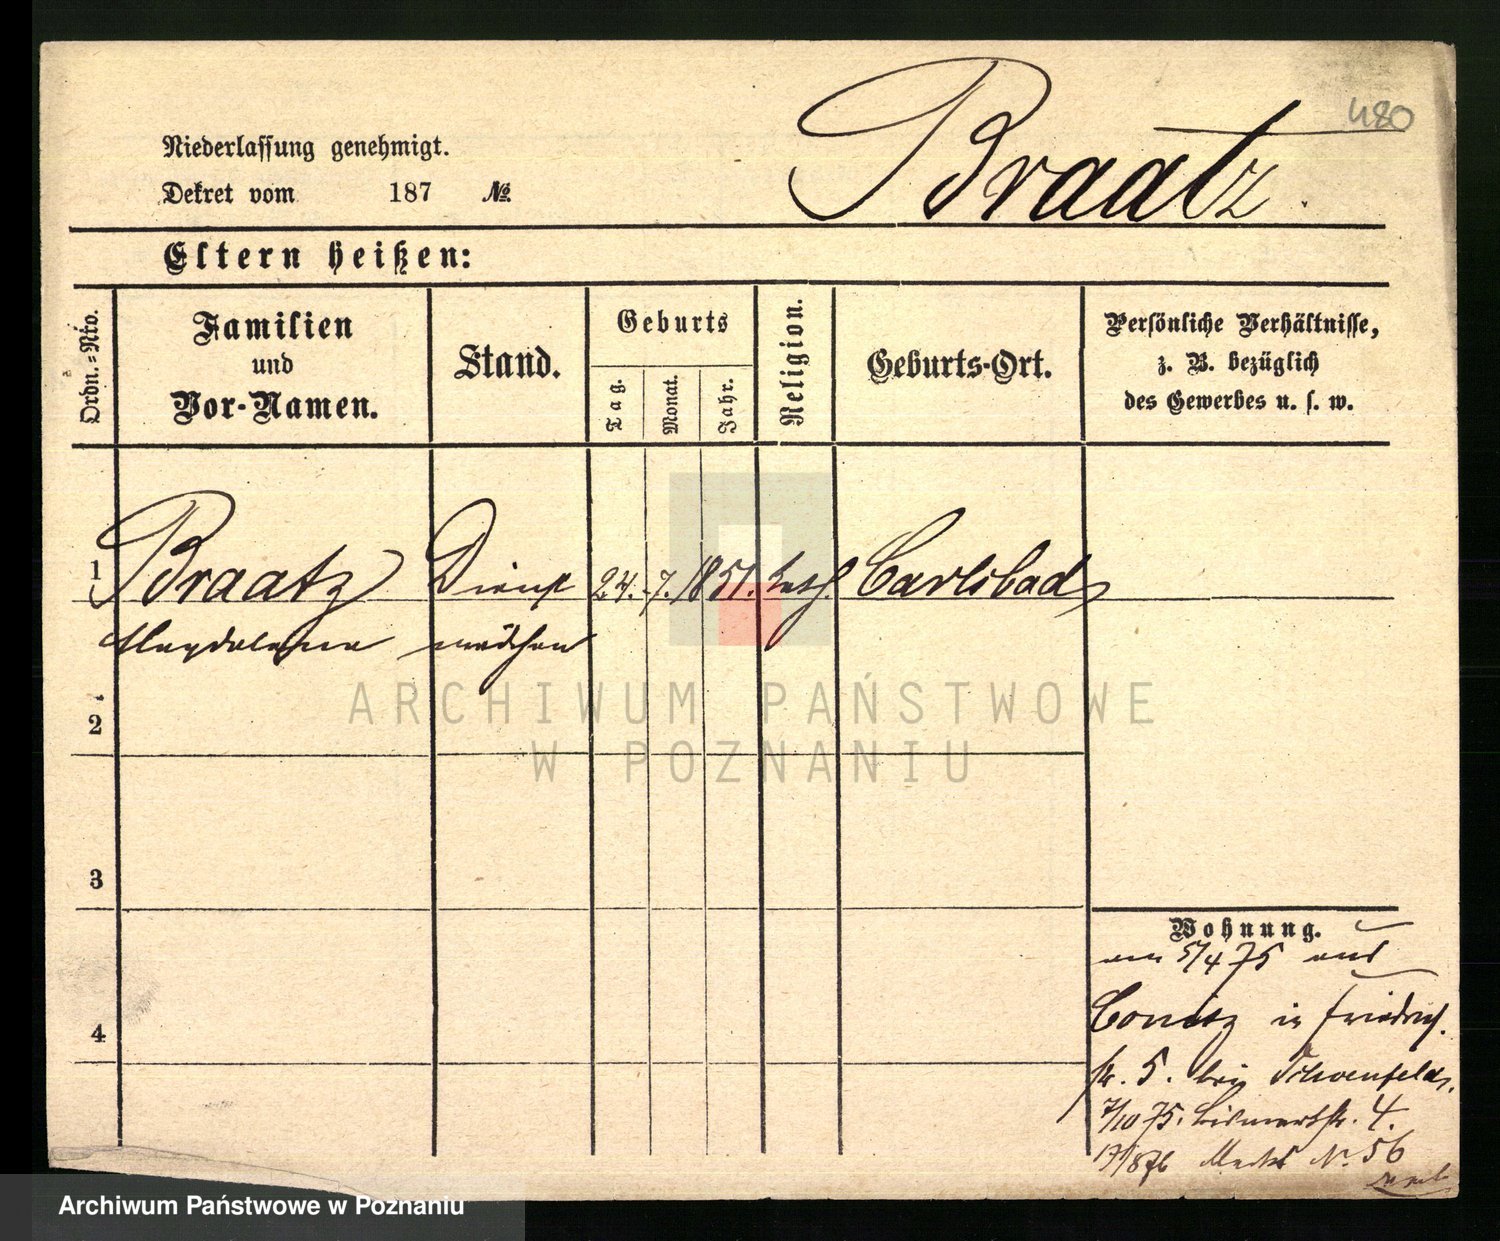 480
Niederlassung genehmigt.
Dekret vom 187 №
Braatz.
Eltern heißen:
Ordn.=Nro.
Familien
und
Vor-Namen.
Stand.
Geburts
Tag.
Monat.
Jahr.
Religion.
Geburts-Ort.
Persönliche Verhältnisse,
z. B. bezüglich
des Gewerbes u. s. w.
1 Braatz Dienst 24. 7. 1851. kath. Carlsbad
Magdalena mädchen
2
3
4
Wohnung.
am 5/4 75 aus
Conitz in Friedrich
str. 5. bei Schoenfeld.
7/10 75. Bismarkstr. 4.
Markt Nr. 56
ARCHIWUM PAŃSTWOWE
W POZNANIU
Archiwum Państwowe w Poznaniu